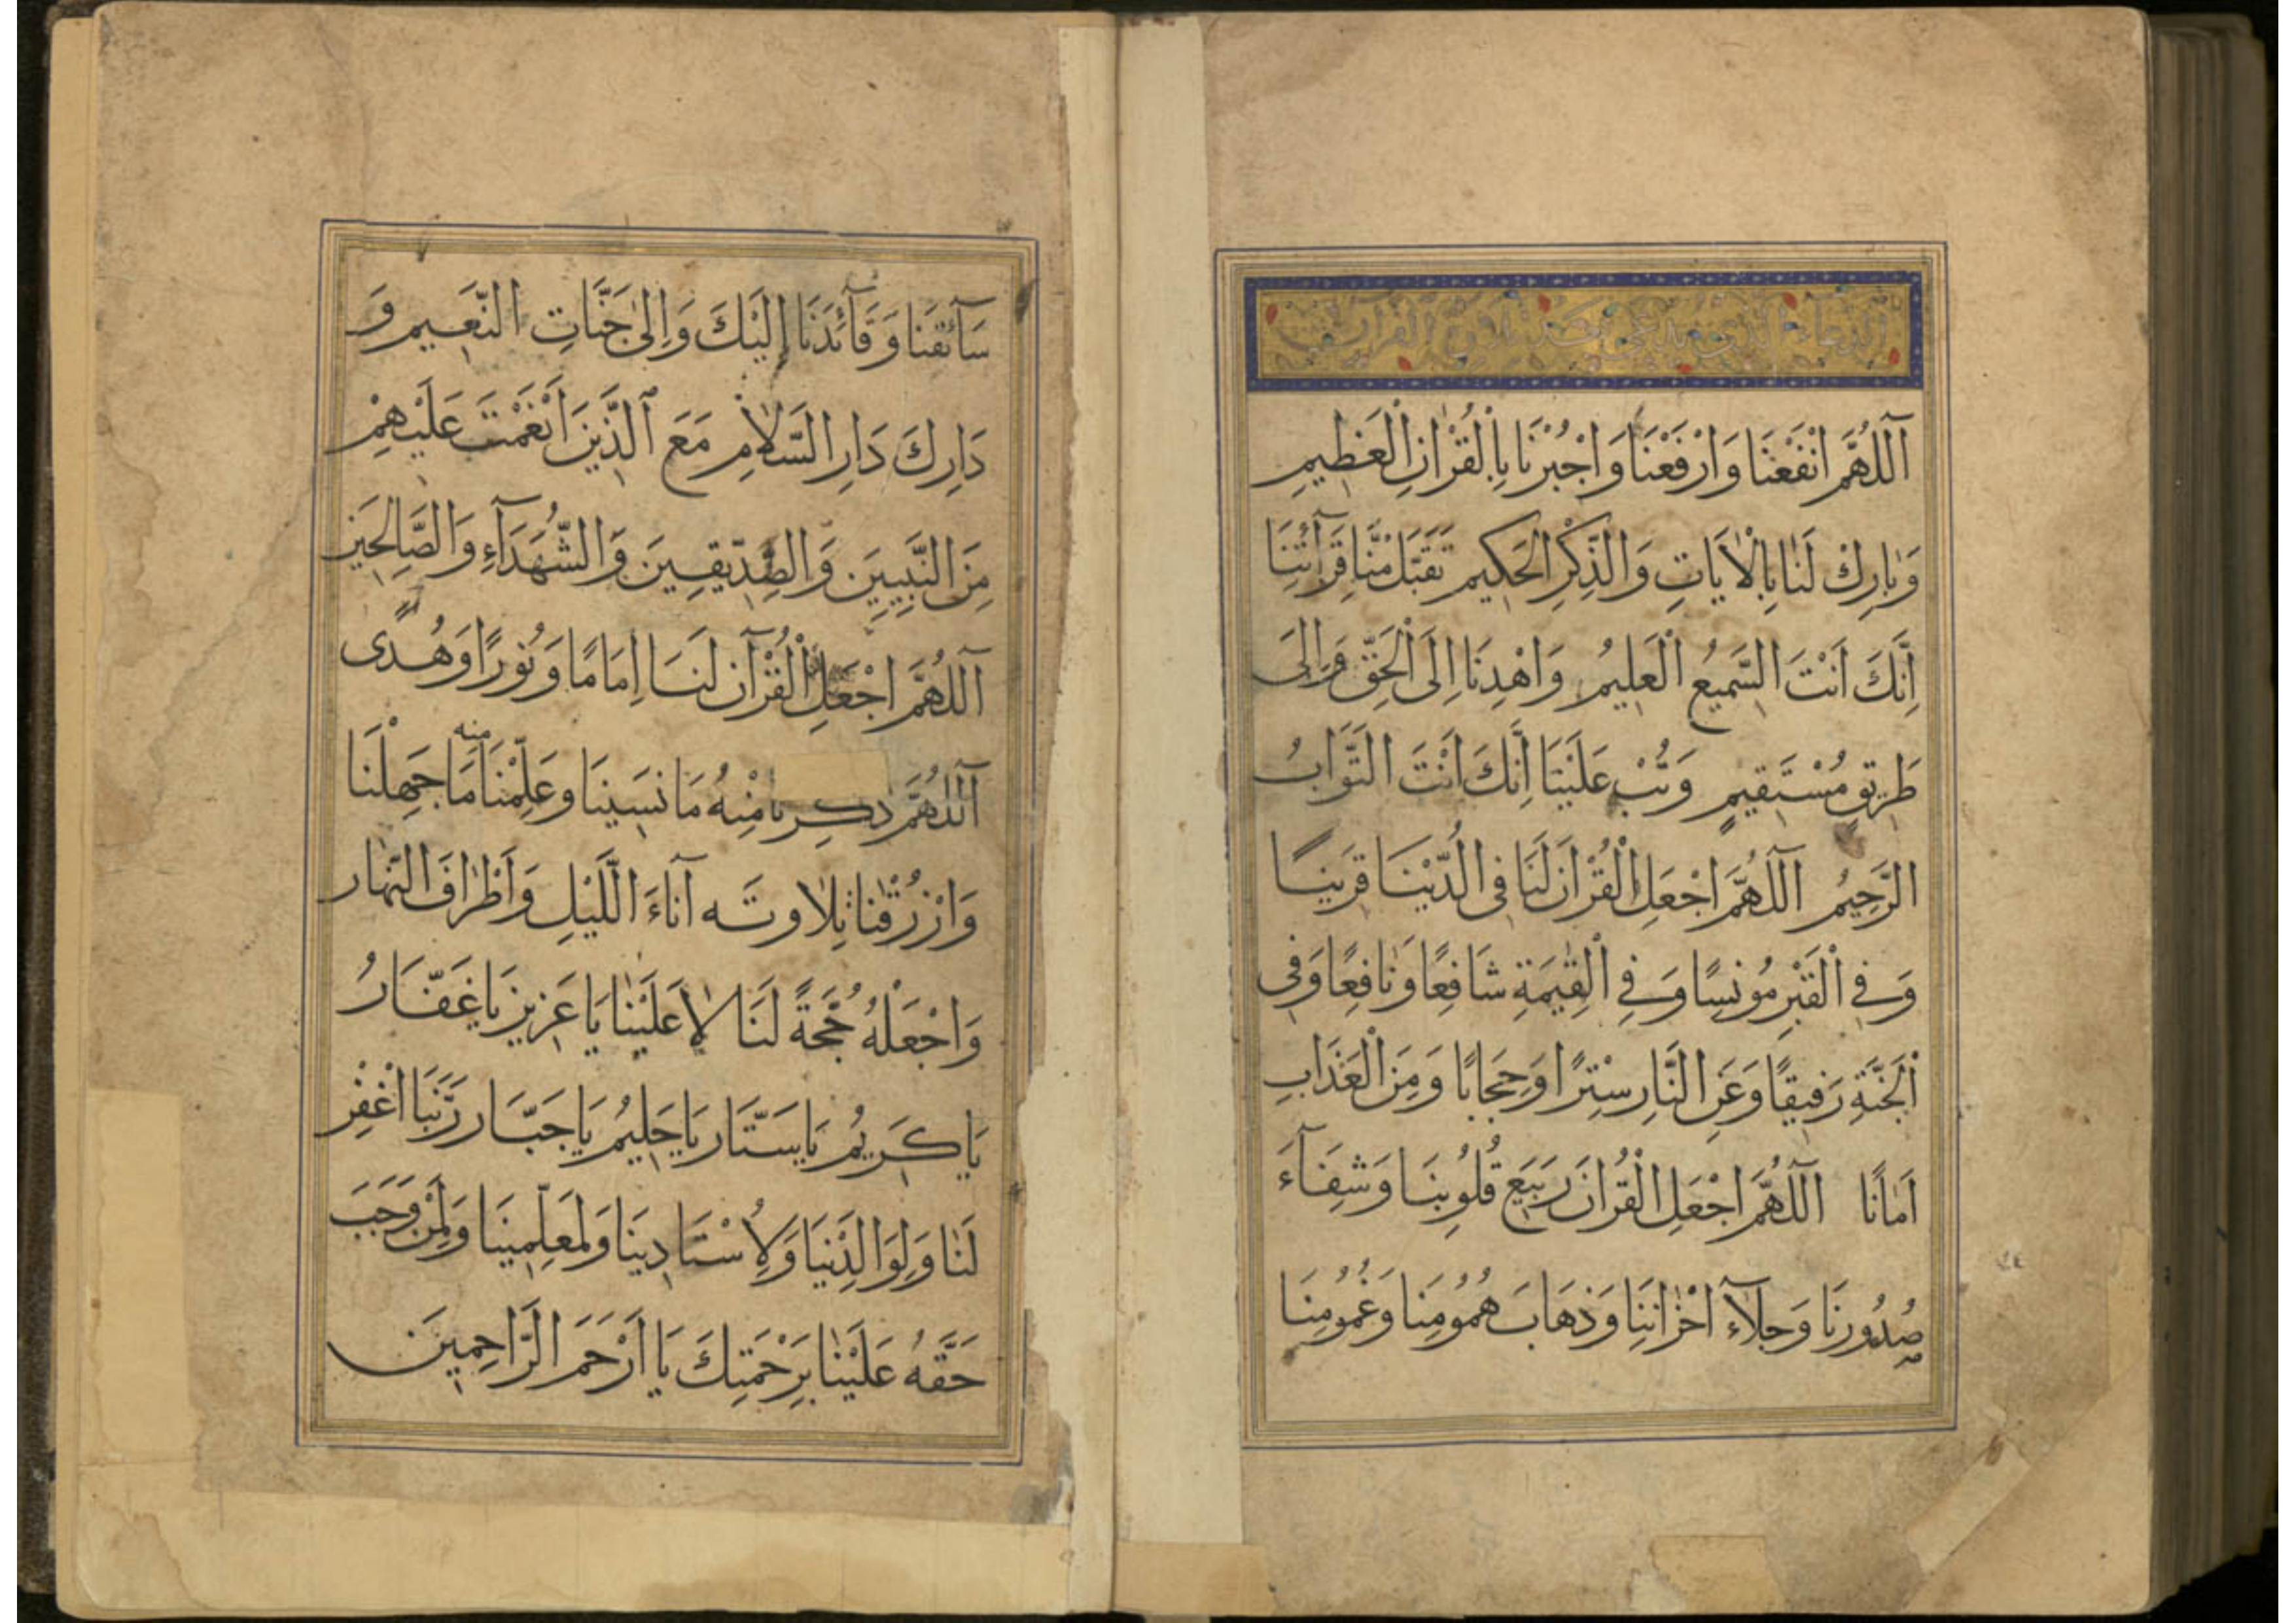 الدعاء الذى يدعى بعد تلاوة القرآن
اَللّٰهُمَّ انْفَعْنَا وَارْفَعْنَا وَاجْبُرْنَا بِالْقُرْاٰنِ الْعَظِيمِ
وَبَارِكْ لَنَا بِالْاٰيَاتِ وَالذِّكْرِ الْحَكِيمِ تَقَبَّلْ مِنَّا قِرَآئَتَنَا
اِنَّكَ اَنْتَ السَّمِيعُ الْعَلِيمُ وَاهْدِنَا اِلَى الْحَقِّ وَاِلَى
طَرِيقٍ مُسْتَقِيمٍ وَتُبْ عَلَيْنَا اِنَّكَ اَنْتَ التَّوَّابُ
الرَّحِيمُ اَللّٰهُمَّ اجْعَلِ الْقُرْاٰنَ لَنَا فِى الدُّنْيَا قَرِينًا
وَفِى الْقَبْرِ مُونِسًا وَفِى الْقِيٰمَةِ شَافِعًا وَنَافِعًا وَفِى
الْجَنَّةِ رَفِيقًا وَعَنِ النَّارِ سِتْرًا وَحِجَابًا وَمِنَ الْعَذَابِ
اَمَانًا اَللّٰهُمَّ اجْعَلِ الْقُرْاٰنَ رَبِيعَ قُلُوبِنَا وَشِفَآءَ
صُدُورِنَا وَجِلَآءَ اَحْزَانِنَا وَذَهَابَ هُمُومِنَا وَغُمُومِنَا
سَآئِقَنَا وَقَآئِدَنَا إِلَيْكَ وَاِلىٰ جَنَّاتِ النَّعِيمِ وَ
دَارِكَ دَارِ السَّلَامِ مَعَ الَّذِينَ اَنْعَمْتَ عَلَيْهِمْ
مِنَ النَّبِيِينَ وَالصِّدِّيقِينَ وَالشُّهَدَآءِ وَالصَّالِحِينَ
اَللّٰهُمَّ اجْعَلِ الْقُرْآنَ لَنَا اِمَامًا وَنُورًا وَهُدًى
اَللّٰهُمَّ ذكِرنا مِنْهُ مَا نَسِينَا وَعَلِّمْنَا منه مَا جَهِلْنَا
وَارْزُقْنَا تِلَاوتَه آنَاءَ اللَّيْلِ وَاَطْرَافَ النَّهَار
وَاجْعَلْهُ حُجَّةً لَنَا لَا عَلَيْنَا يَا عَزِيز يَا غَفَّارُ
يَا كَرِيمُ يَا سَتَّار يَا حَلِيمُ يَا جَبَّار رَبَّنَا اغْفِرْ
لَنَا وَلِوَالِدَيْنَا وَلِاُسْتَادِينَا وَلِمُعَلِّمِينَا وَلِمَنْ وَجَبَ
حَقَّهُ عَلَيْنَا بِرَحْمَتِكَ يَا اَرْحَمَ الرَّاحِمِينَ